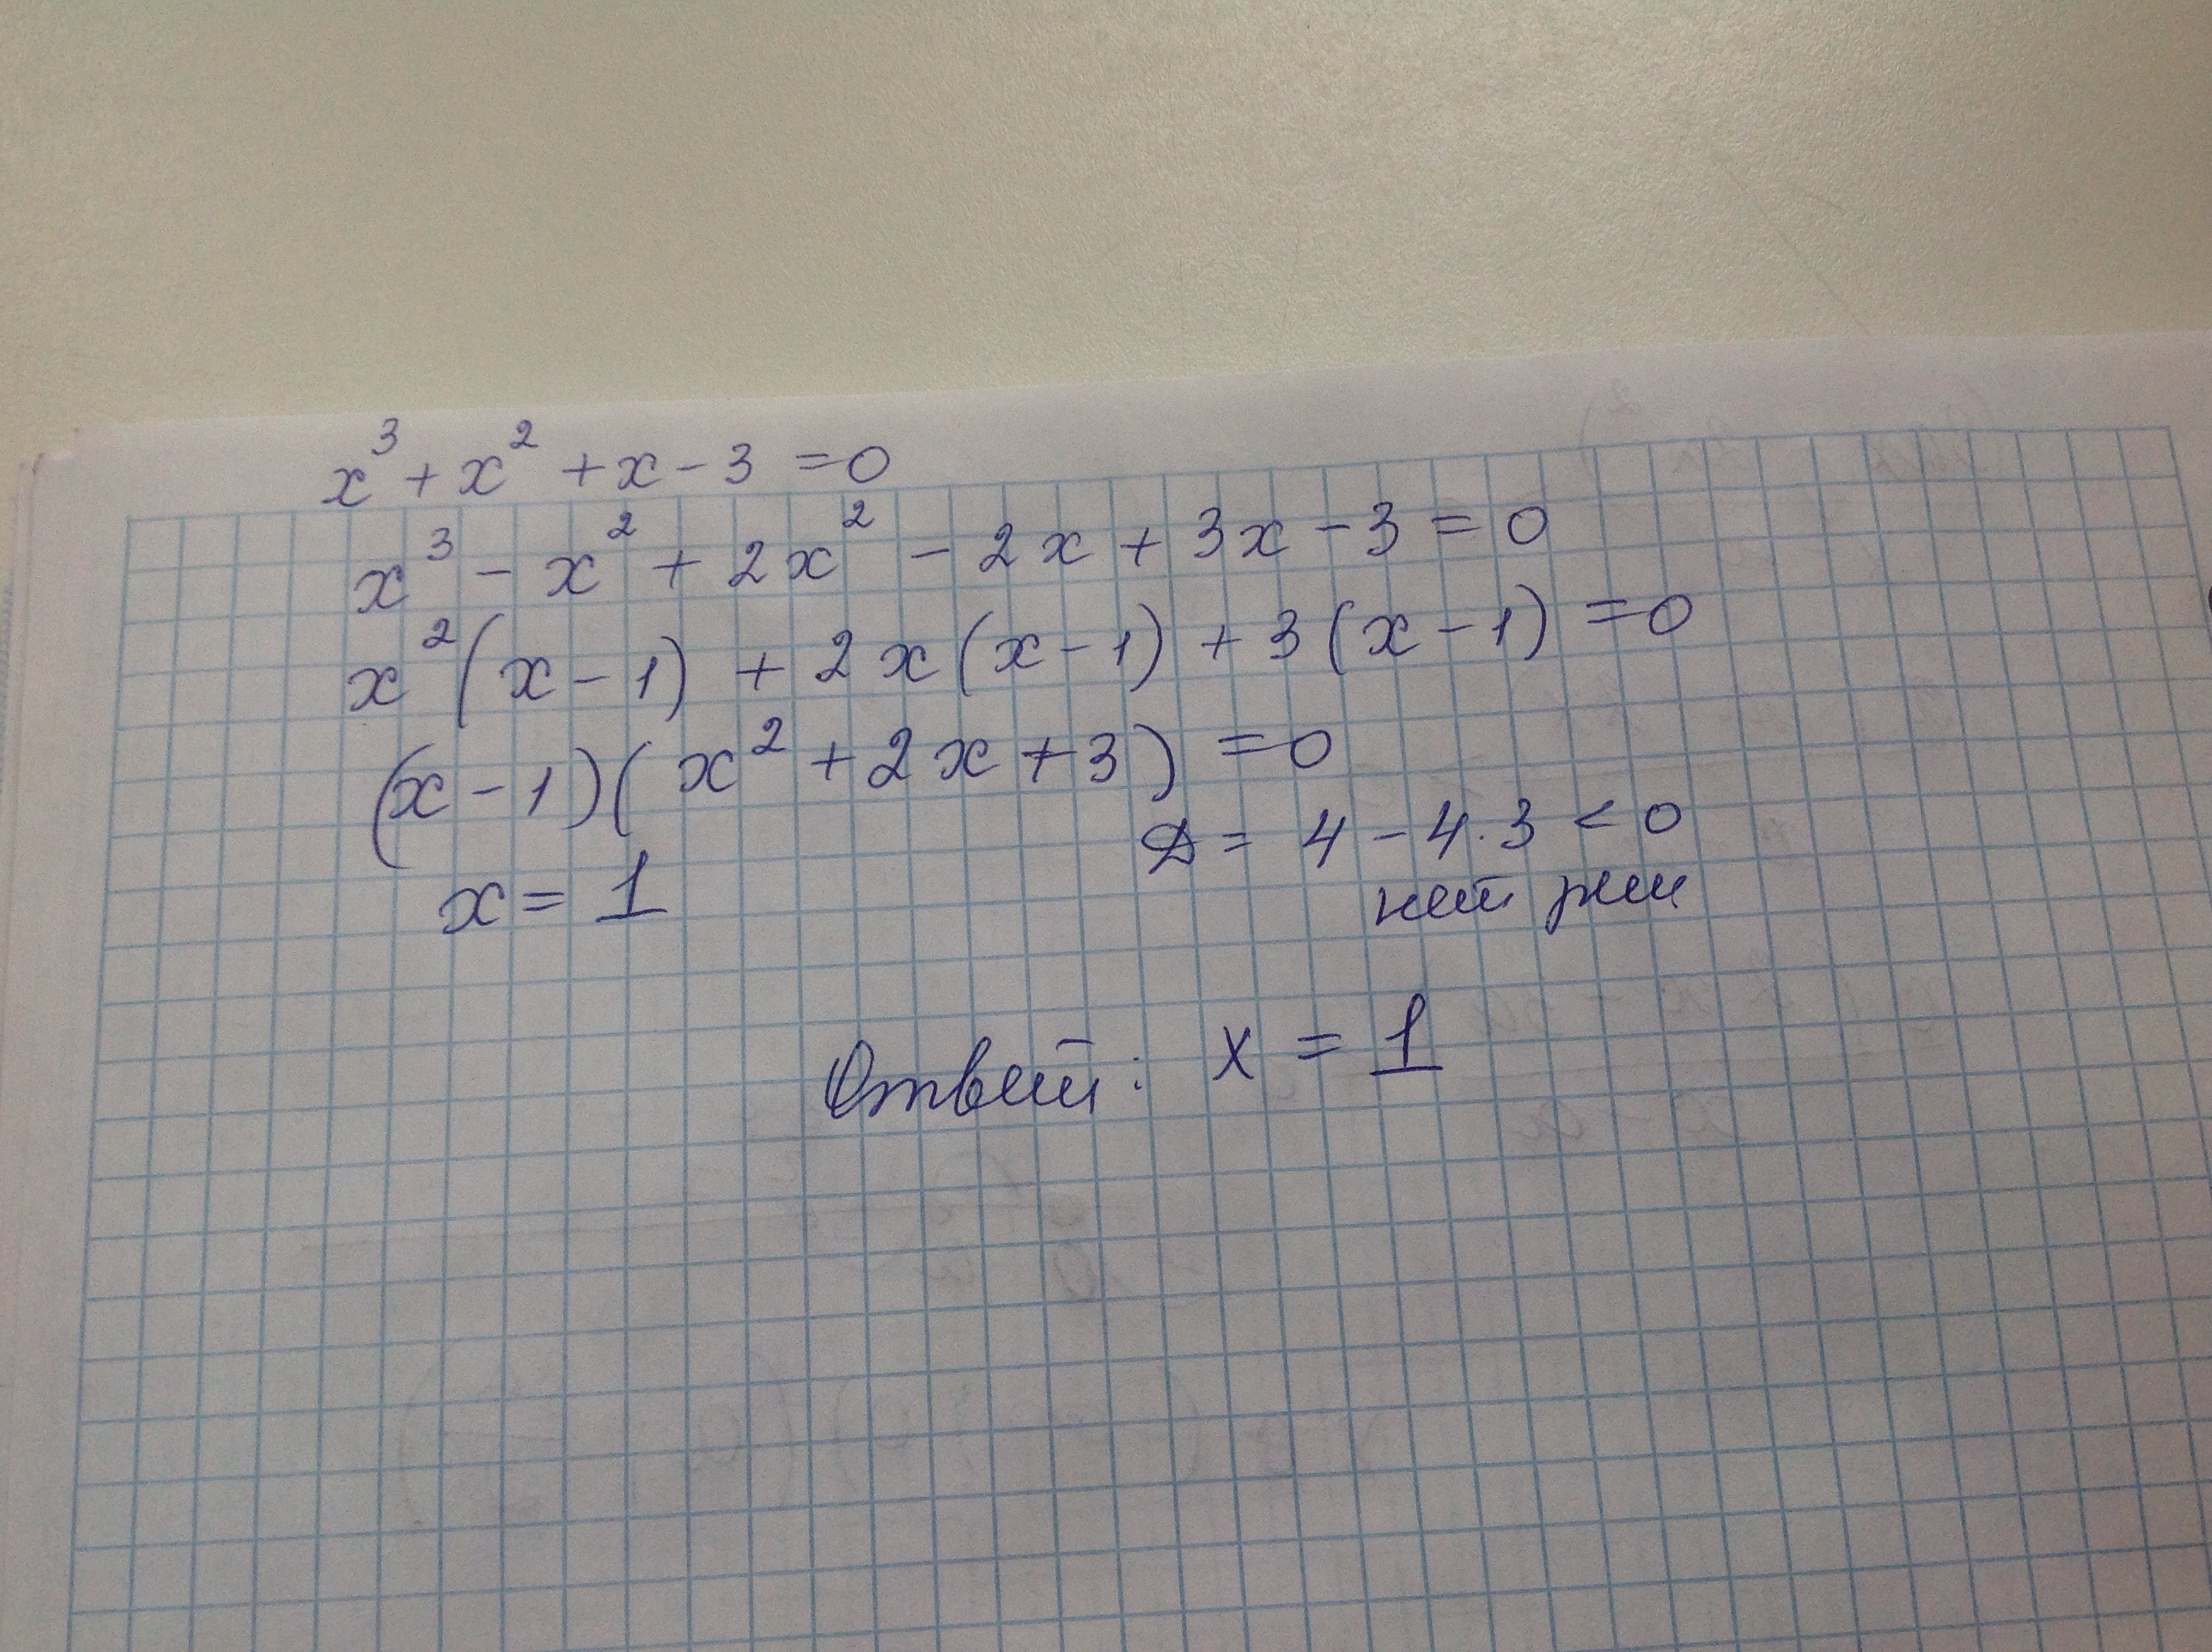 x³ + x² + x - 3 = 0
x³ - x² + 2x² - 2x + 3x - 3 = 0
x²(x-1) + 2x(x-1) + 3(x-1) = 0
(x-1)(x² + 2x + 3) = 0
x = 1
Д = 4 - 4·3 < 0
нет реш
Ответ: x = 1